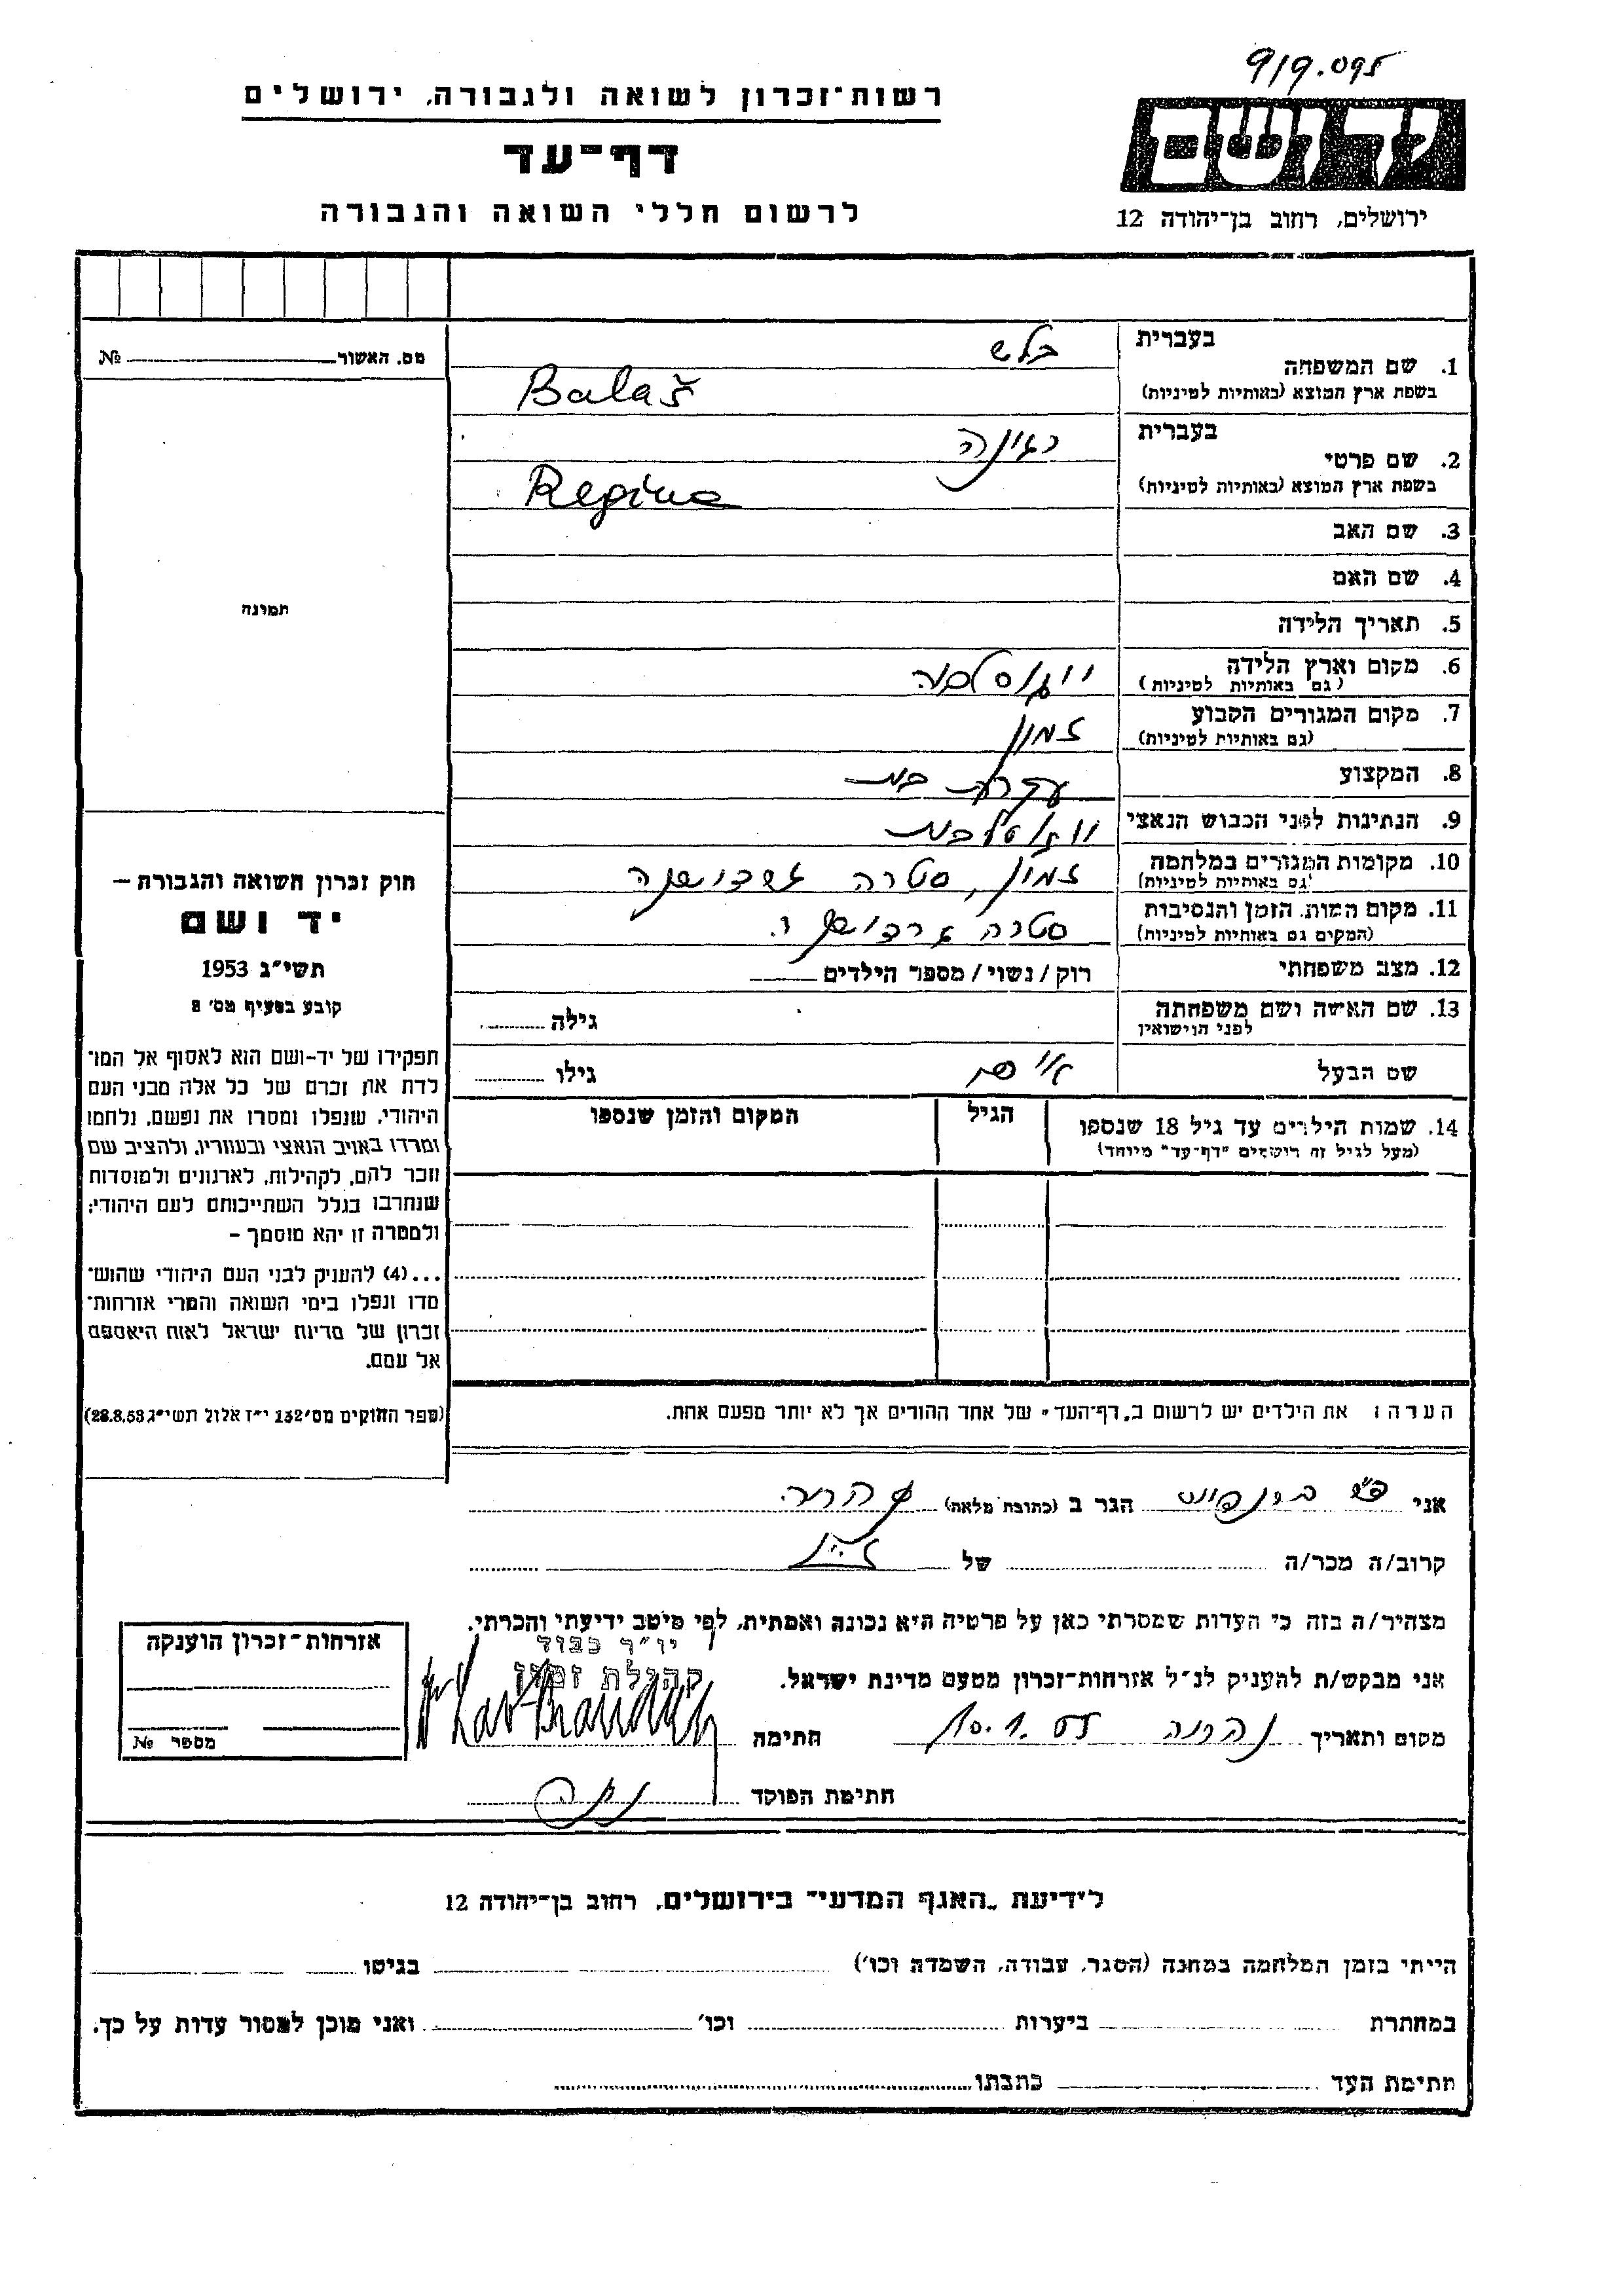 919.095
רשות־זכרון לשואה ולגבורה, ירושלים
דף־עד
לרשום חללי השואה והגבורה
ידושם
ירושלים, רחוב בן־יהודה 12
מס. האשור № 
תמונה
בעברית
בלש
1. שם המשפחה
בשפת ארץ המוצא (באותיות לטיניות)
Balaš
בעברית
רגינה
2. שם פרטי
בשפת ארץ המוצא (באותיות לטיניות)
Regina
3. שם האב
4. שם האם
5. תאריך הלידה
6. מקום וארץ הלידה
(גם באותיות לטיניות)
יוגוסלביה
7. מקום המגורים הקבוע
(גם באותיות לטיניות)
זמון
8. המקצוע
עקרת בית
9. הנתינות לפני הכבוש הנאצי
יוגוסלבית
10. מקומות המגורים במלחמה
(גם באותיות לטיניות)
זמון, סטרה
11. מקום המות, הזמן והנסיבות
(המקום גם באותיות לטיניות)
סטרה
12. מצב משפחתי
רוק / נשוי / מספר הילדים
13. שם האשה ושם משפחתה
לפני הנישואין
גילה
שם הבעל
גילו
14. שמות הילדים עד גיל 18 שנספו
(מעל לגיל זה רושמים "דף־עד" מיוחד)
הגיל
המקום והזמן שנספו
חוק זכרון השואה והגבורה –
יד ושם
תשי"ג 1953
קובע בסעיף מס' 2
תפקידו של יד-ושם הוא לאסוף אל המו־
לדת את זכרם של כל אלה מבני העם
היהודי, שנפלו ומסרו את נפשם, נלחמו
ומרדו באויב הנאצי ובעוזריו, ולהציב שם
וזכר להם, לקהילות, לארגונים ולמוסדות
שנחרבו בגלל השתייכותם לעם היהודי;
ולמטרה זו יהא מוסמך –
...(4) להעניק לבני העם היהודי שהוש־
מדו ונפלו בימי השואה והמרי אזרחות־
זכרון של מדינת ישראל לאות היאספם
אל עמם.
(ספר החוקים מס' 132 י"ז אלול תשי"ג 28.8.53)
הערה: את הילדים יש לרשום ב„דף־העד" של אחד ההורים אך לא יותר מפעם אחת.
אני
הגר ב (כתובת מלאה) נהריה
קרוב/ה מכר/ה
של
מצהיר/ה בזה כי העדות שמסרתי כאן על פרטיה היא נכונה ואמתית, לפי מיטב ידיעתי והכרתי.
יו"ר כבוד
קהילת זמון
אני מבקש/ת להעניק לנ"ל אזרחות־זכרון מטעם מדינת ישראל.
מקום ותאריך נהריה 10.1.55 חתימה
חתימת הפוקד
אזרחות־זכרון הוענקה
מספר №
לידיעת „האגף המדעי" בירושלים, רחוב בן־יהודה 12
הייתי בזמן המלחמה במחנה (הסגר, עבודה, השמדה וכו') בגיטו
במחתרת ביערות וכו' ואני מוכן למסור עדות על כך.
חתימת העד כתבתו